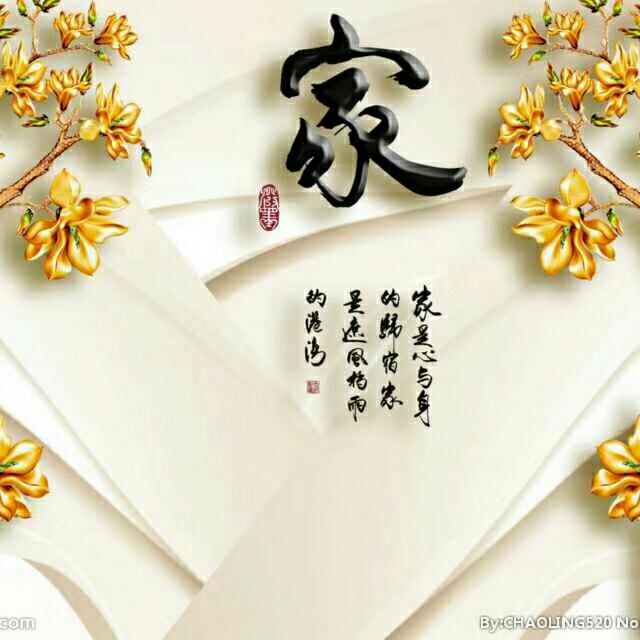 家
家是心与身
的归宿家
是遮风挡雨
的港湾
.com
By:CHAOLING520 No